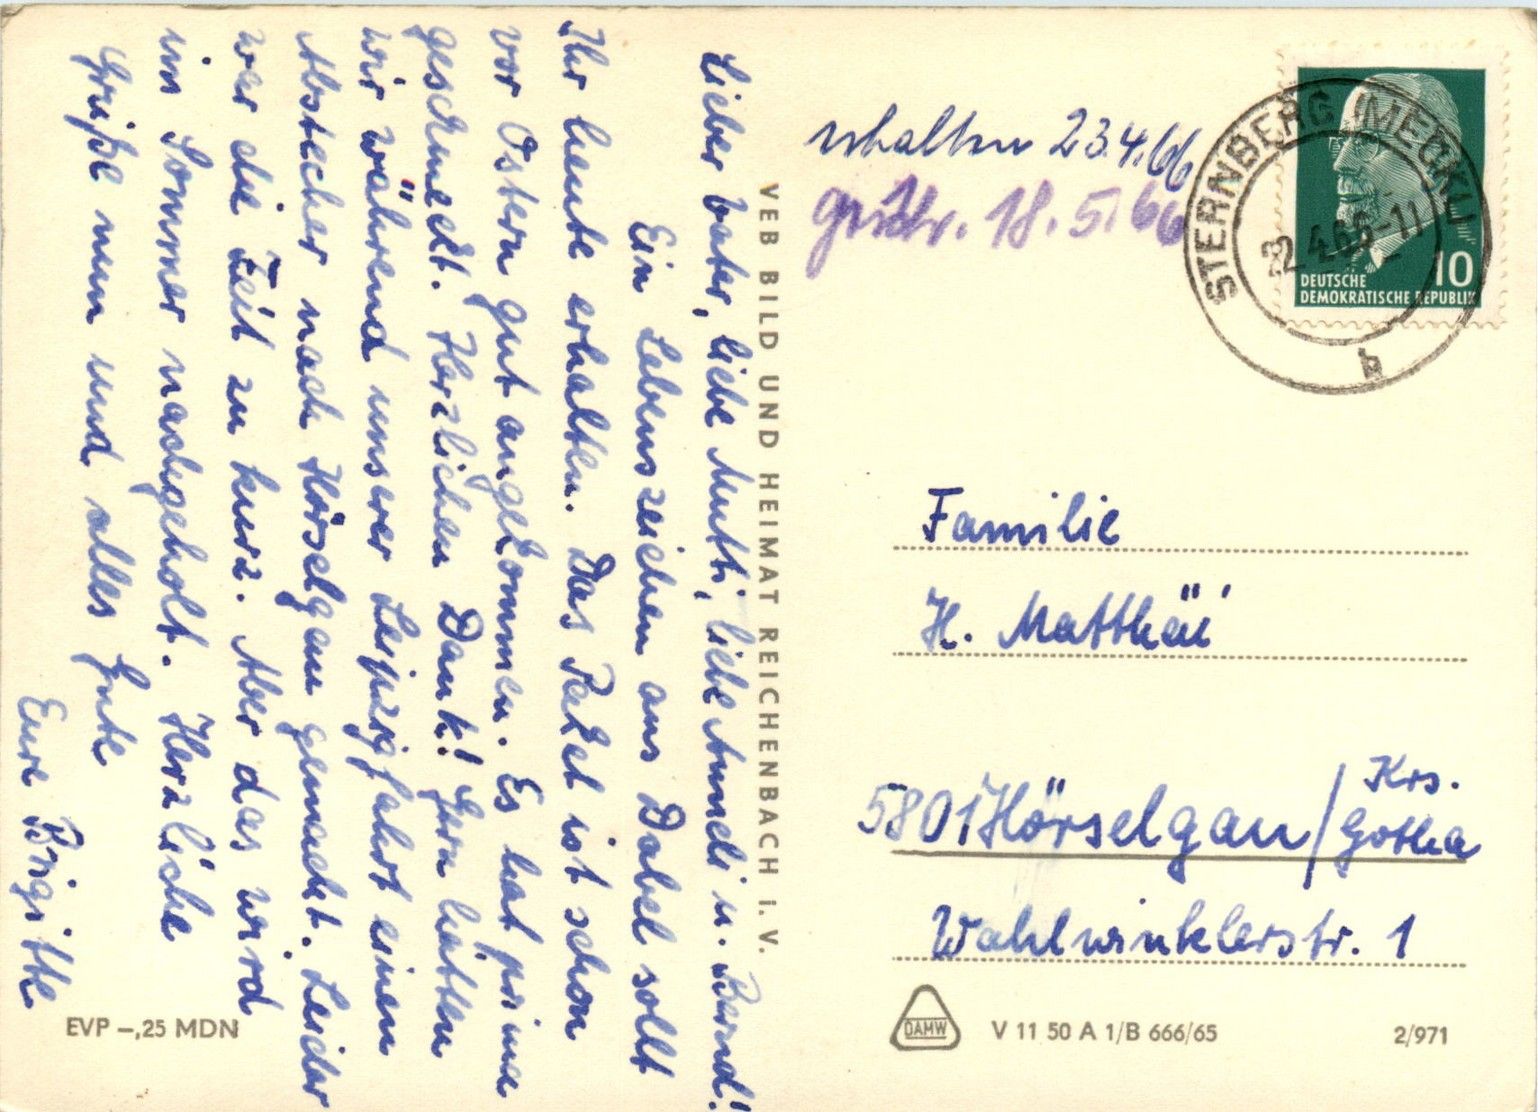 Lieber Vater, liebe Mutti, liebe Anneli u. Bernd!
Ein Lebenszeichen aus Dabel sollt
Ihr heute erhalten. Das Paket ist schon
vor Ostern gut angekommen. Es hat prima
geschmeckt. Herzlichen Dank! Gern hätten
wir während unserer Leipzigfahrt einen
Abstecher nach Hörselgau gemacht. Leider
war die Zeit zu kurz. Aber das wird
im Sommer nachgeholt. Herzliche
Grüße nun und alles Gute
Eure Brigitte
EVP -,25 MDN
VEB BILD UND HEIMAT REICHENBACH I. V.
erhalten 23.4.66
18.5.66
STERNBERG (MECKL)
22.4.66-11
b
10
DEUTSCHE
DEMOKRATISCHE REPUBLIK
Familie
H. Matthäi
5801 Hörselgau / Krs.
Gotha
Wahlwinklerstr. 1
DAMW
V 11 50 A 1/B 666/65
2/971